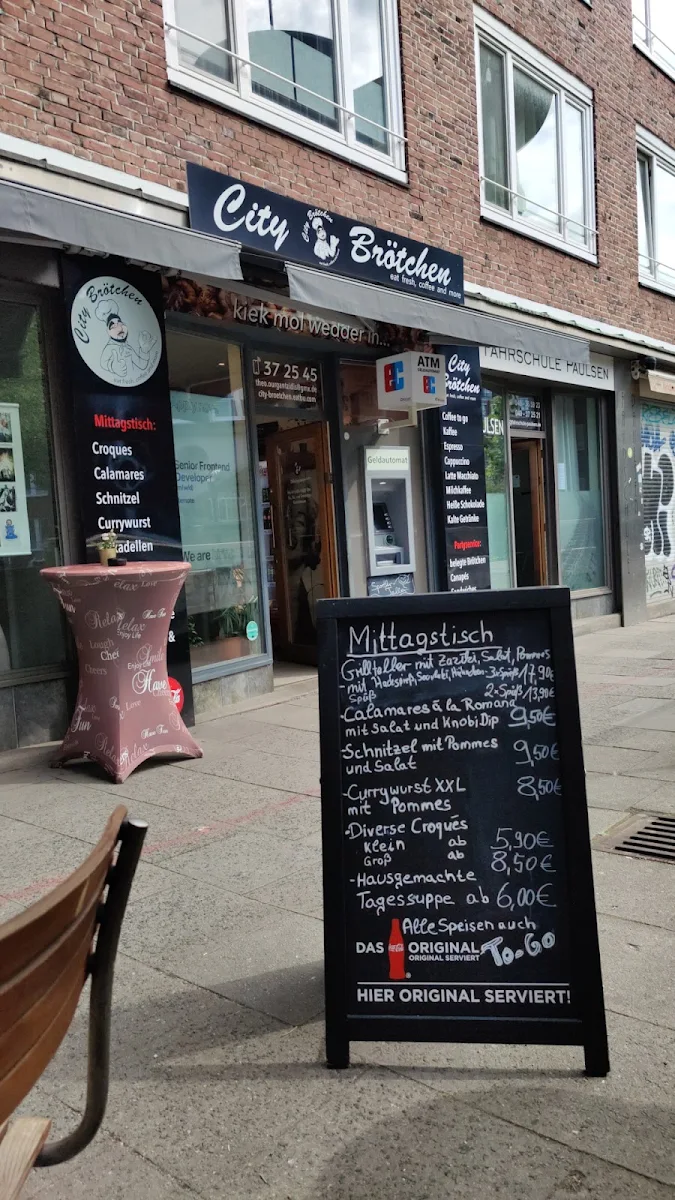 City Brötchen
eat fresh, coffee and more
kiek mol wedder in...
City Brötchen
Mittagstisch:
Croques
Calamares
Schnitzel
Currywurst
37 25 45
city-broetchen.eatbu.com
Senior Frontend
Developer
We are
ATM
Geldautomat
City
Brötchen
Coffee to go
Kaffee
Espresso
Cappuccino
Latte Macchiato
Milchkaffee
Heiße Schokolade
Kalte Getränke
Partyservice:
belegte Brötchen
Canapés
FAHRSCHULE PAULSEN
Relax
Enjoy Life
Laugh
Cheers
Smile
Have
Love
Fun
Relax
Mittagstisch
Grillteller mit Zaziki, Salat, Pommes
17,90€
2x Spieß 13,90€
-Calamares á la Romana
mit Salat und Knobi Dip 9,50€
-Schnitzel mit Pommes
und Salat 9,50€
-Currywurst XXL
mit Pommes 8,50€
-Diverse Croques
Klein ab 5,90€
Groß ab 8,50€
-Hausgemachte
Tagessuppe ab 6,00€
Alle Speisen auch
To-Go
DAS ORIGINAL
ORIGINAL SERVIERT
HIER ORIGINAL SERVIERT!